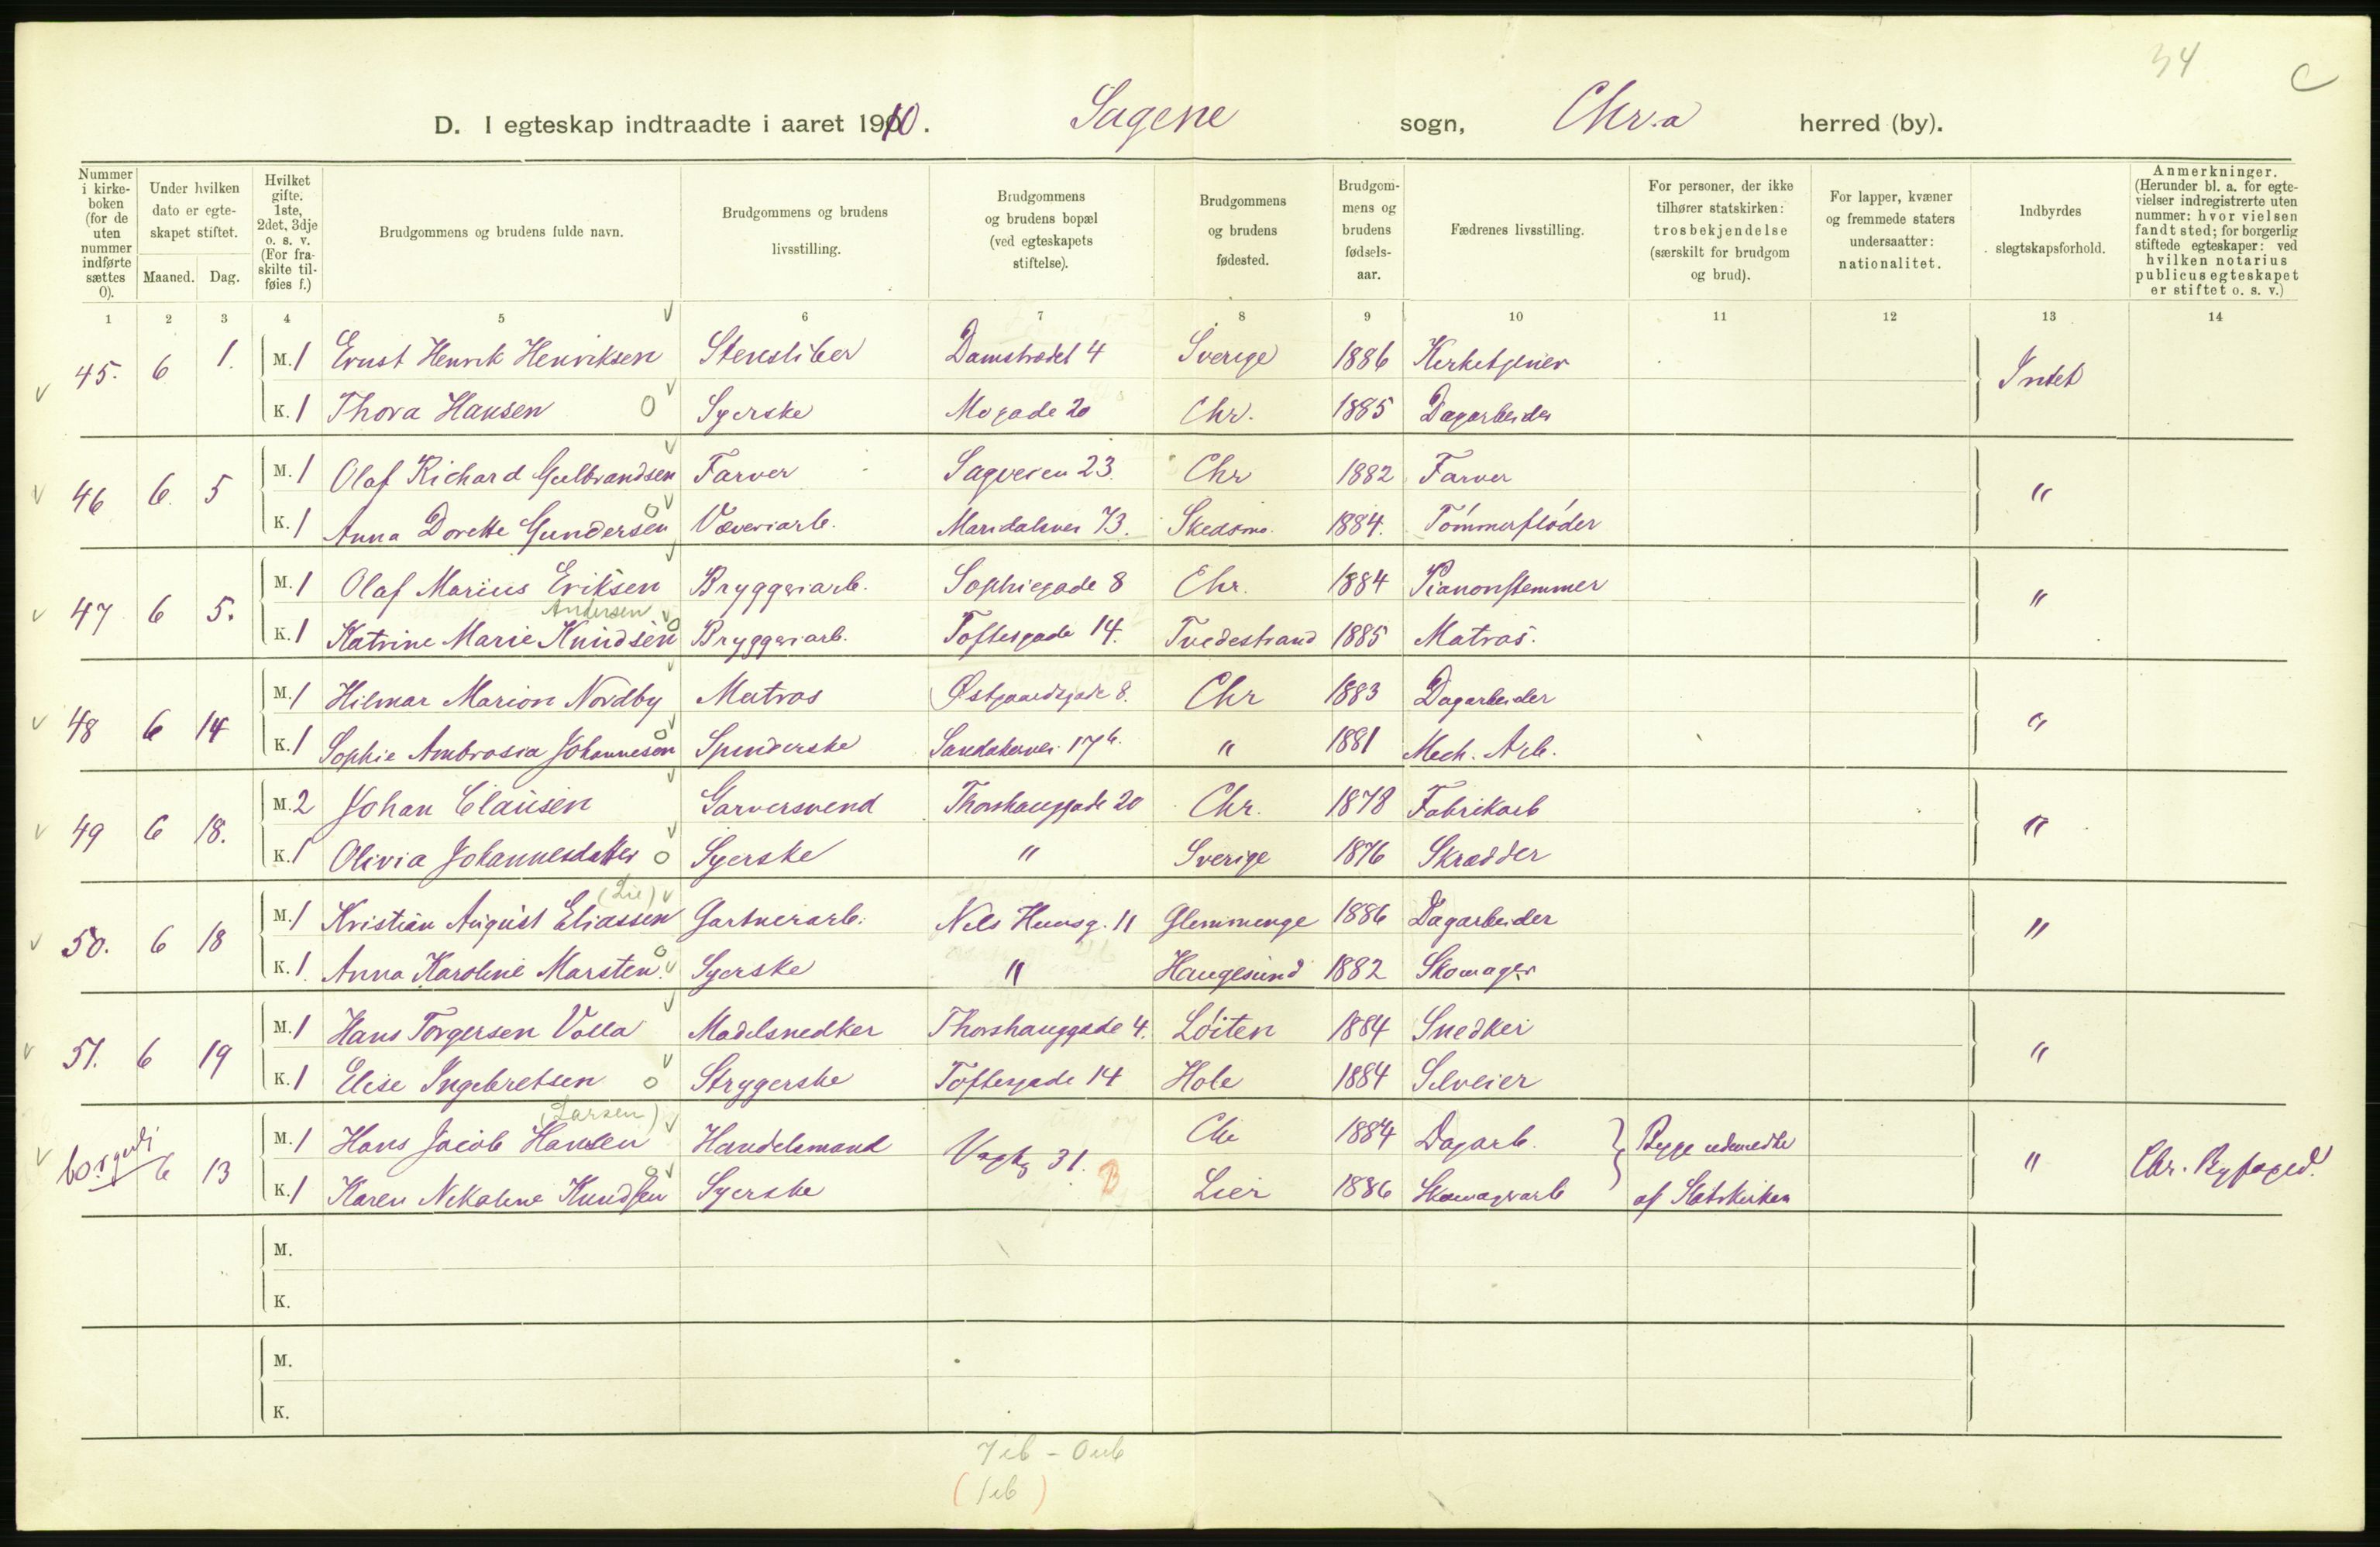 34
C
D. I egteskap indtraadte i aaret 1910. Sagene sogn, Chr.a herred (by).
Nummer i kirke-boken (for de uten nummer indførte sættes 0).
Under hvilken dato er egte-skapet stiftet.
Maaned. Dag.
Hvilket gifte. 1ste, 2det, 3dje o. s. v. (For fra-skilte til-føies f.)
Brudgommens og brudens fulde navn.
Brudgommens og brudens livsstilling.
Brudgommens og brudens bopæl (ved egteskapets stiftelse).
Brudgommens og brudens fødested.
Brudgom-mens og brudens fødsels-aar.
Fædrenes livsstilling.
For personer, der ikke tilhører statskirken: trosbekjendelse (særskilt for brudgom og brud).
For lapper, kvæner og fremmede staters undersaatter: nationalitet.
Indbyrdes slegtskapsforhold.
Anmerkninger. (Herunder bl. a. for egte-vielser indregistrerte uten nummer: hvor vielsen fandt sted; for borgerlig stiftede egteskaper: ved hvilken notarius publicus egteskapet er stiftet o. s. v.)
1 2 3 4 5 6 7 8 9 10 11 12 13 14
45. 6 1. M. 1 Ernst Henrik Henriksen Stensliber Damstrædet 4 Sverige 1886 Kirketjener Intet
K. 1 Thora Hansen O Syerske Mogade 20 Chr. 1885 Dagarbeider
46 6. 5 M. 1 Olaf Richard Gulbrandsen Farver Sagveien 23. Chr 1882 Farver "
K. 1 Anna Dorette Gundersen O Væveriarb. Maridalsvei 73. Skedsmo. 1884. Tömmerflöder
47 6 5. M. 1 Olaf Marius Eriksen Bryggeriarb. Sophiegade 8 Chr. 1884 Pianonstemmer "
Andersen
K. 1 Katrine Marie Knudsen O Bryggeriarb. Toftesgade 14. Tvedestrand 1885 Matros.
48 6 14 M. 1 Hilmar Marion Nordby Matros Østgaardsgade 8. Chr 1883 Dagarbeider "
K. 1 Sophie Ambrosia Johannesen O Spinderske Sandakervei 17b. " 1881 Mech. Arb.
49 6 18. M. 2 Johan Clausen Garversvend Thorshauggade 20 Chr. 1878 Fabrikarb "
K. 1 Olivia Johannesdatter O Syerske " Sverige 1876 Skrædder
(Lie)
50. 6 18 M. 1 Kristian August Eliassen Gartnerarb. Nels Huusg. 11 Glemminge 1886 Dagarbeider "
K. 1. Anna Karoline Marsten. O Syerske " Haugesund 1882 Skomager
51. 6 19 M. 1 Hans Torgersen Volla Modelsnedker Thorshauggade 4. Löiten 1884 Snedker "
K. 1 Elise Ingebretsen O Strygerske Toftesgade 14 Hole 1884 Selveier
(Larsen)
borgerli 6 13 M. 1 Hans Jacob Hansen Handelsmand Vogtsg 31. Chr 1884 Dagarb. Begge udmeldte " Chr. Byfoged.
K. 1 Karen Nikoline Knudsen O Syerske B Lier 1886 Skomagerarb af Statskirken
M.
K.
M.
K.
7 ib - 0 ub
(1 ib)